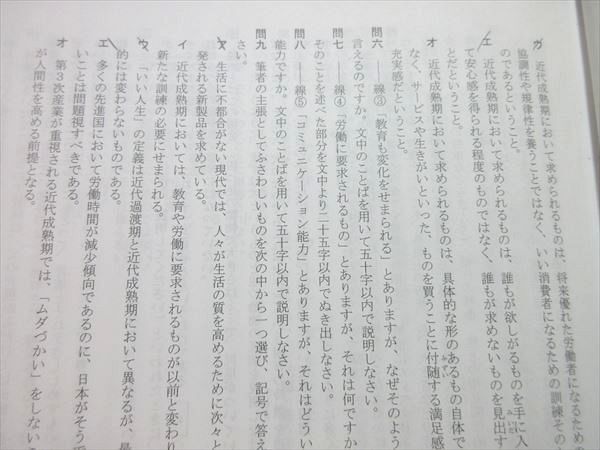 ガ 近代成熟期において求められるものは、将来優れた労働者になるための
協調性や規律性を養うことではなく、いい消費者になるための訓練その
のであるということ。
エ 近代成熟期において求められるものは、誰もが欲しがるものを手に入
て安心感を得られる程度のものではなく、誰もが求めないものを見出す
とだということ。
オ 近代成熟期において求められるものは、具体的な形のあるもの自体で
なく、サービスや生きがいといった、ものを買うことに付随する満足感
充実感だということ。
問六 ――線③「教育も変化をせまられる」とありますが、なぜそのよう
言えるのですか。文中のことばを用いて五十字以内で説明しなさい。
問七 ――線④「労働に要求されるもの」とありますが、それは何ですか
そのことを述べた部分を文中より二十五字以内でぬき出しなさい。
問八 ――線⑤「コミュニケーション能力」とありますが、それはどうい
能力ですか。文中のことばを用いて五十字以内で説明しなさい。
問九 筆者の主張としてふさわしいものを次の中から一つ選び、記号で答え
さい。
ア 生活に不都合がない現代では、人々が生活の質を高めるために次々と
発される新製品を求めている。
イ 近代成熟期においては、教育や労働に要求されるものが以前と変わり
新たな訓練の必要にせまられる。
ウ 「いい人生」の定義は近代過渡期と近代成熟期において異なるが、最
的には変わらないものである。
エ 多くの先進国において労働時間が減少傾向であるのに、日本がそうで
いことは問題視すべきである。
オ 第3次産業が重視される近代成熟期では、「ムダづかい」をしないこ
が人間性を高める前提となる。